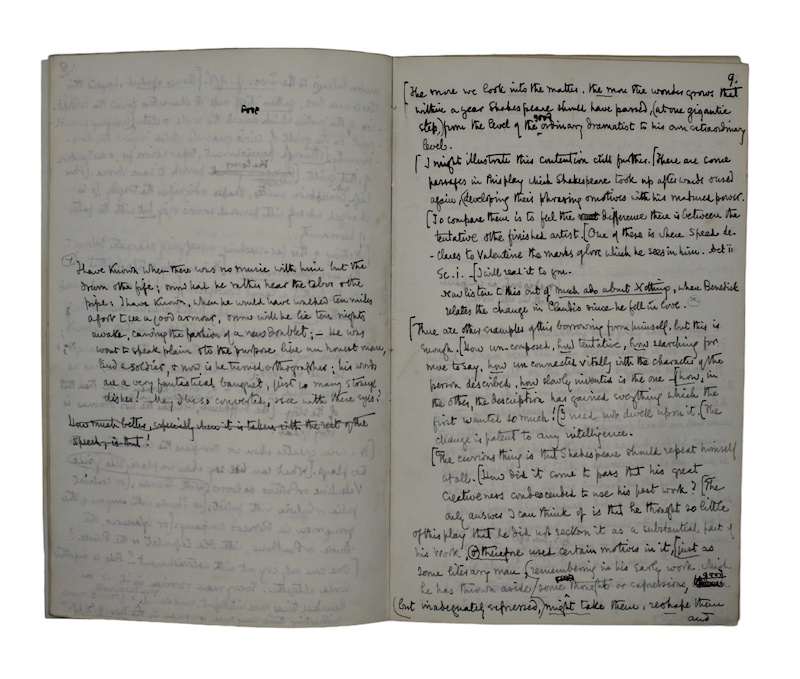 I have known when there was no music with him but the
drum & the fife; & now had he rather hear the tabor & the
pipe; I have known, when he would have walked ten miles
afoot to see a good armour, & now will he lie ten nights
awake, carving the fashion of a new doublet; – He was
wont to speak plain & to the purpose like an honest man,
and a soldier, & now is he turned orthographer; his words
are a very fantastical banquet, just so many strange
dishes! May I be so converted, & see with these eyes?
How much better, especially when it is taken with the rest of the
speech, is that!
9.
[The more we look into the matter, the more the wonder grows that
within a year Shakespeare should have passed, (at one gigantic
step,) from the level of the good ordinary dramatist to his own extraordinary
level.
[I might illustrate this contention still further. [There are some
passages in this play which Shakespeare took up afterwards & used
again, developing their phrasing & motives with his matured power.
[To compare these is to feel the difference there is between the
tentative & the finished artist. [One of these is where Speed de-
-clares to Valentine the marks of love which he sees in him. Act ii
Sc. i. [I will read it to you.
Now listen to this out of Much ado about Nothing, where Benedick
relates the change in Claudio since he fell in love.
[There are other examples of this borrowing from himself, but this is
enough. [How un-composed, how tentative, how searching for
more to say, how unconnected vitally with the character of the
person described, how slowly invented is the one – [how, in
the other, the description has gained everything which the
first wanted so much! [I need not dwell upon it. [The
change is patent to any intelligence.
[The curious thing is that Shakespeare should repeat himself
at all. [How did it come to pass that his great
creativeness condescended to use his past work? [The
only answer I can think of is that he thought so little
of this play that he did not reckon it as a substantial part of
his work, & therefore used certain motives in it, [just as
some literary man, (remembering in his early work, which
he has thrown aside, some good thoughts or expressions,
(but inadequately expressed,) might take them, reshape them
and